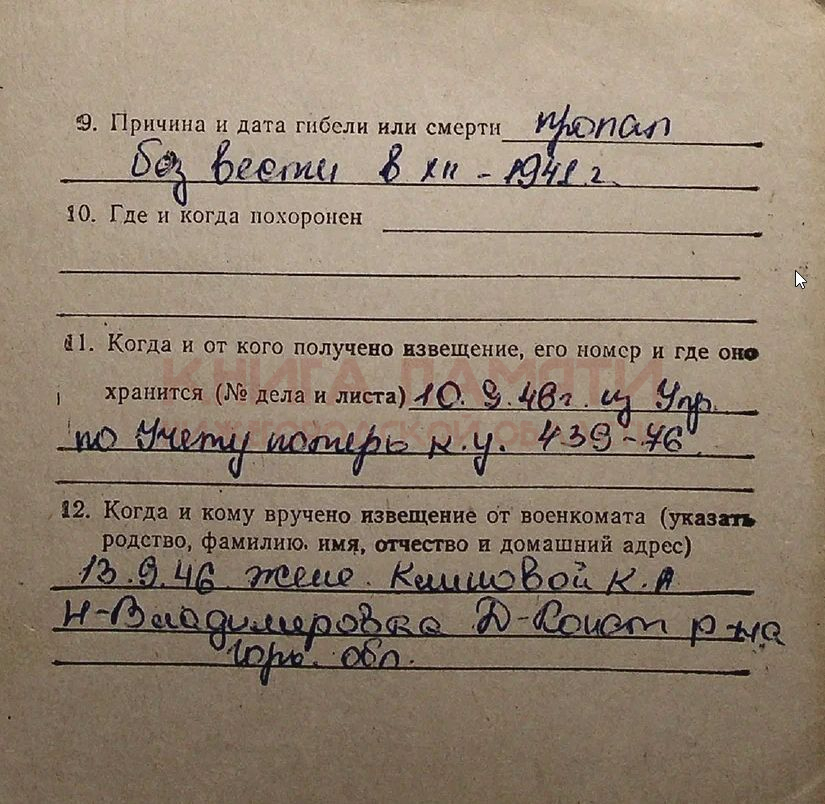 9. Причина и дата гибели или смерти пропал
без вести в XII - 1941 г.
10. Где и когда похоронен
11. Когда и от кого получено извещение, его номер и где оно
КНИГА ПАМЯТИ
хранится (№ дела и листа) 10.9.46г. из Упр.
по Учету потерь н.у. 439-76
12. Когда и кому вручено извещение от военкомата (указать
родство, фамилию, имя, отчество и домашний адрес)
13.9.46 жене. Климовой К.А
Н-Владимировка Д-Конст р-на
Горьк. обл.